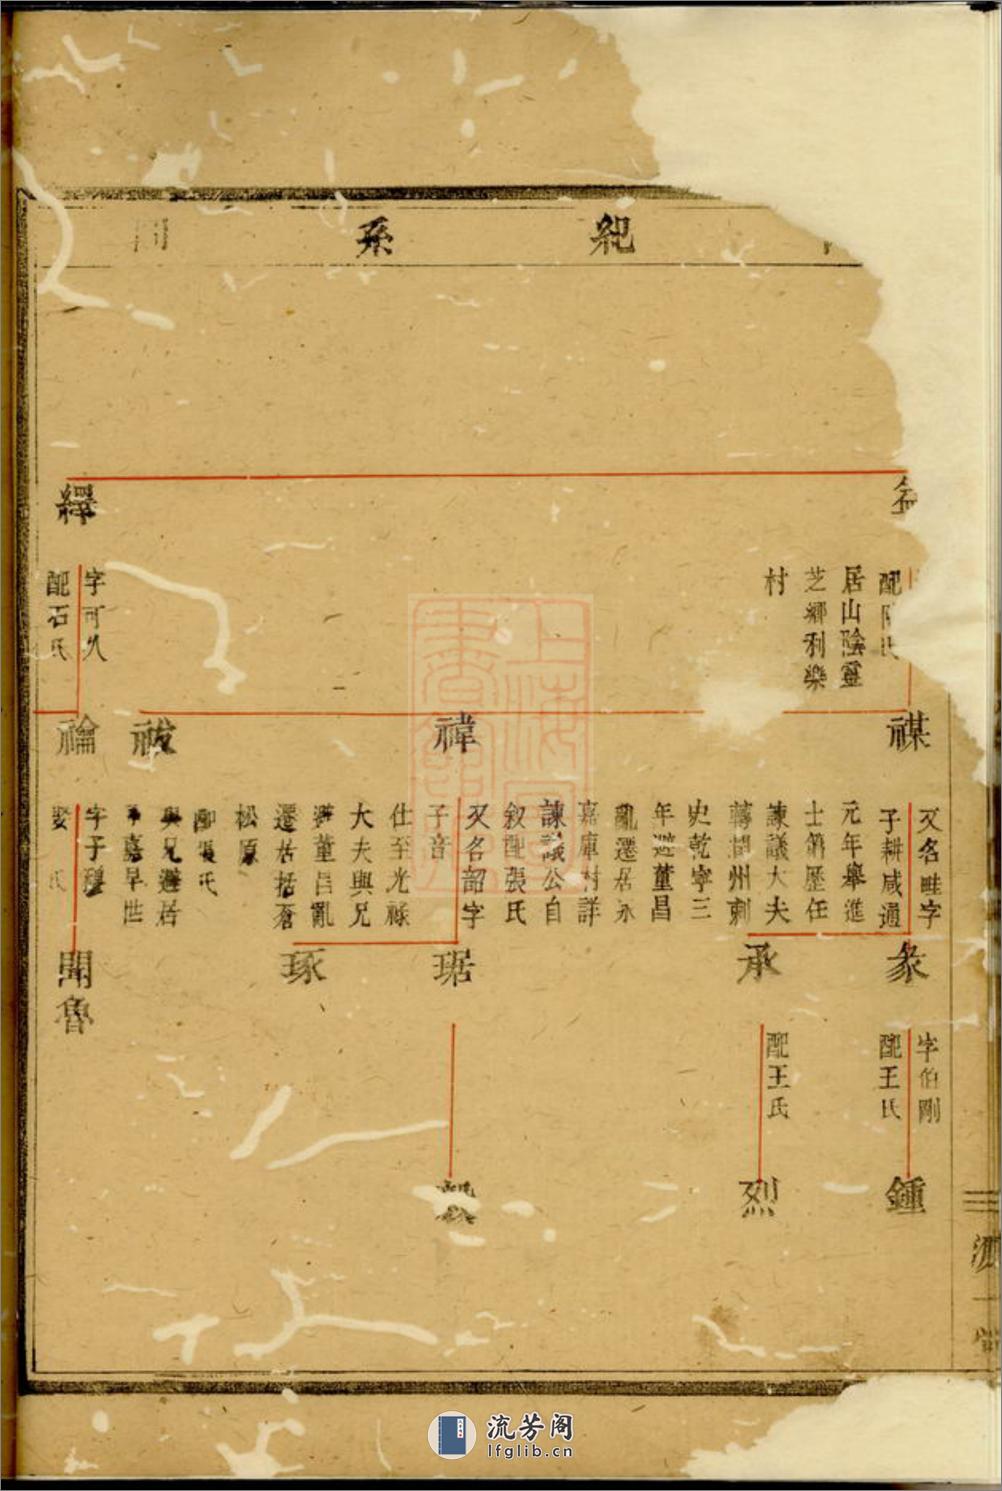 紀
系
繹
配陳氏
居山陰靈
芝鄉利樂
村
字可久
配石氏
禖
禕
祓
禴
又名畦字
子耕咸通
元年舉進
士第歷任
諫議大夫
轉開州刺
史乾寧三
年避董昌
亂遷居永
嘉庫村詳
諫議公自
敘配張氏
又名韶字
子音
仕至光祿
大夫與兄
避董昌亂
遷居括蒼
松原
配張氏
與兄避居
永嘉早世
字子穆
娶 氏
彖
承
琚
琢
開魯
字伯剛
配王氏
配王氏
鍾
烈
上海圖書館藏
流芳阁
lfglib.cn